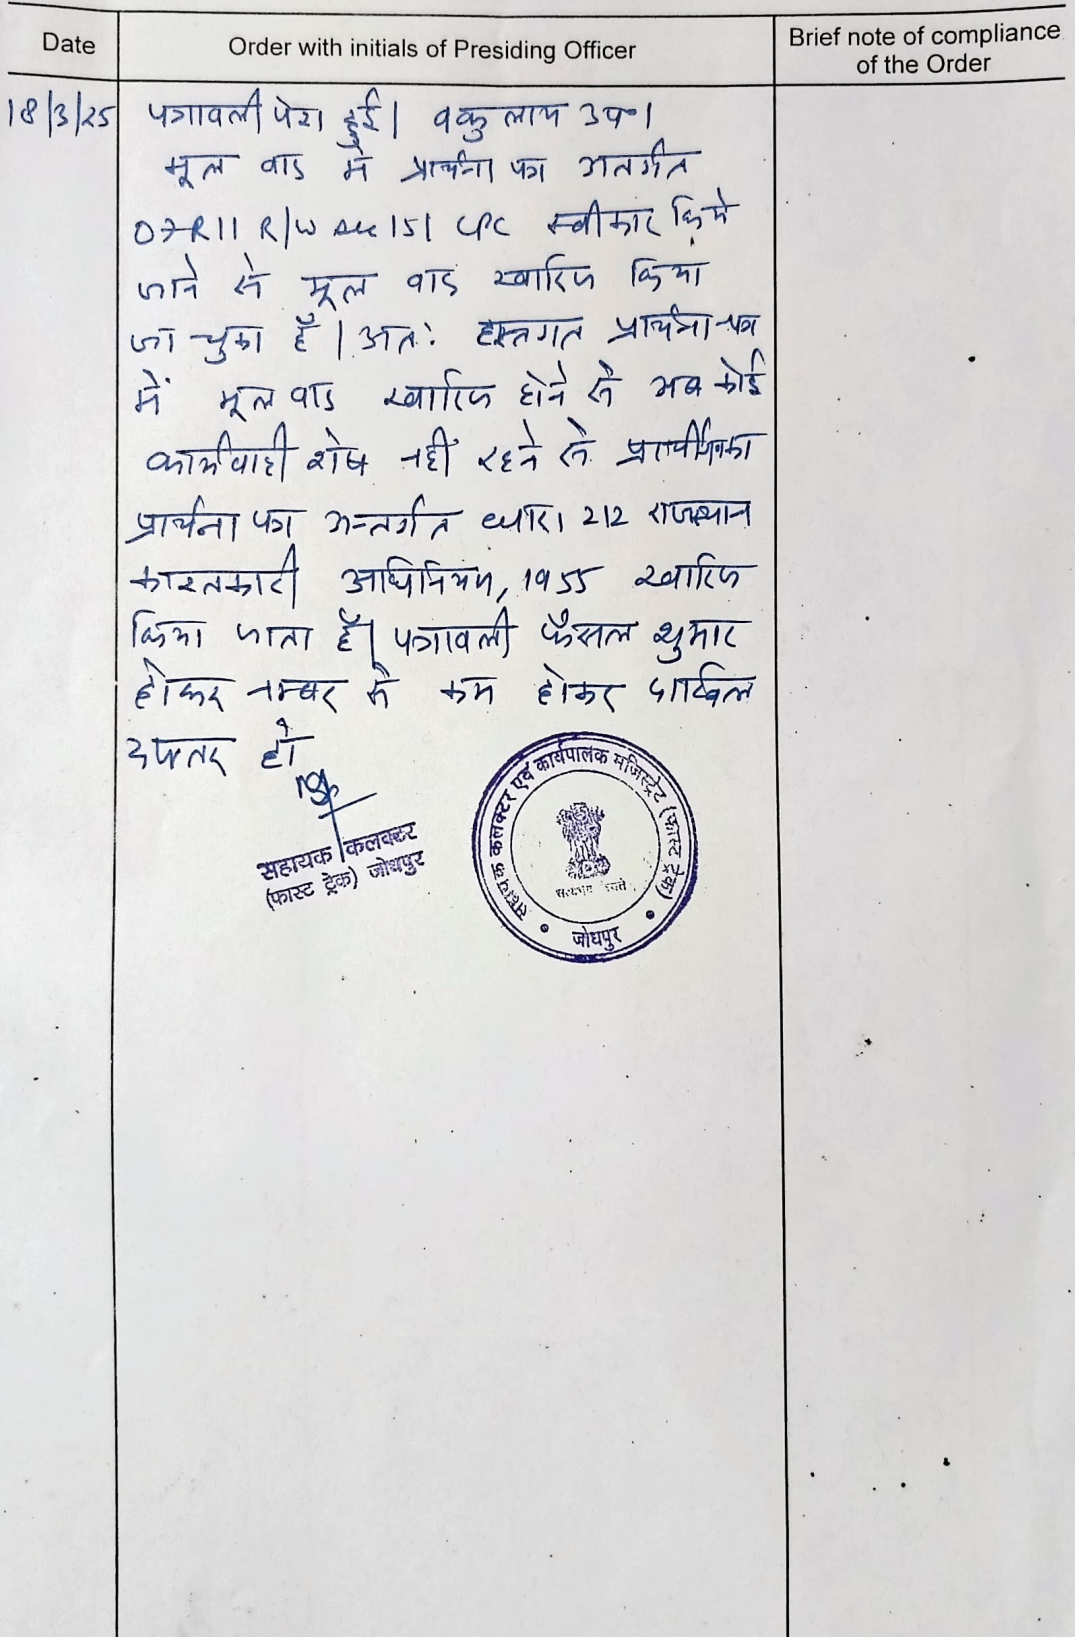 Date
Order with initials of Presiding Officer
Brief note of compliance
of the Order
18/3/25
पत्रावली पेश हुई। वकुलाय उप०।
मूल वाद में प्रार्थना पत्र अन्तर्गत
O7R11 R/W Sec 151 CPC स्वीकार किये
जाने से मूल वाद खारिज किया
जा चुका है। अतः हस्तगत प्रार्थना-पत्र
में मूल वाद खारिज होने से अब कोई
कार्यवाही शेष नहीं रहने से
प्रार्थना पत्र अन्तर्गत धारा 212 राजस्थान
काश्तकारी अधिनियम, 1955 खारिज
किया जाता है। पत्रावली फैसल शुमार
होकर नम्बर से कम होकर दाखिल
दफ्तर हो
सहायक कलक्टर
(फास्ट ट्रेक) जोधपुर
सहायक कलक्टर एवं कार्यपालक मजिस्ट्रेट (फास्ट ट्रेक)
जोधपुर